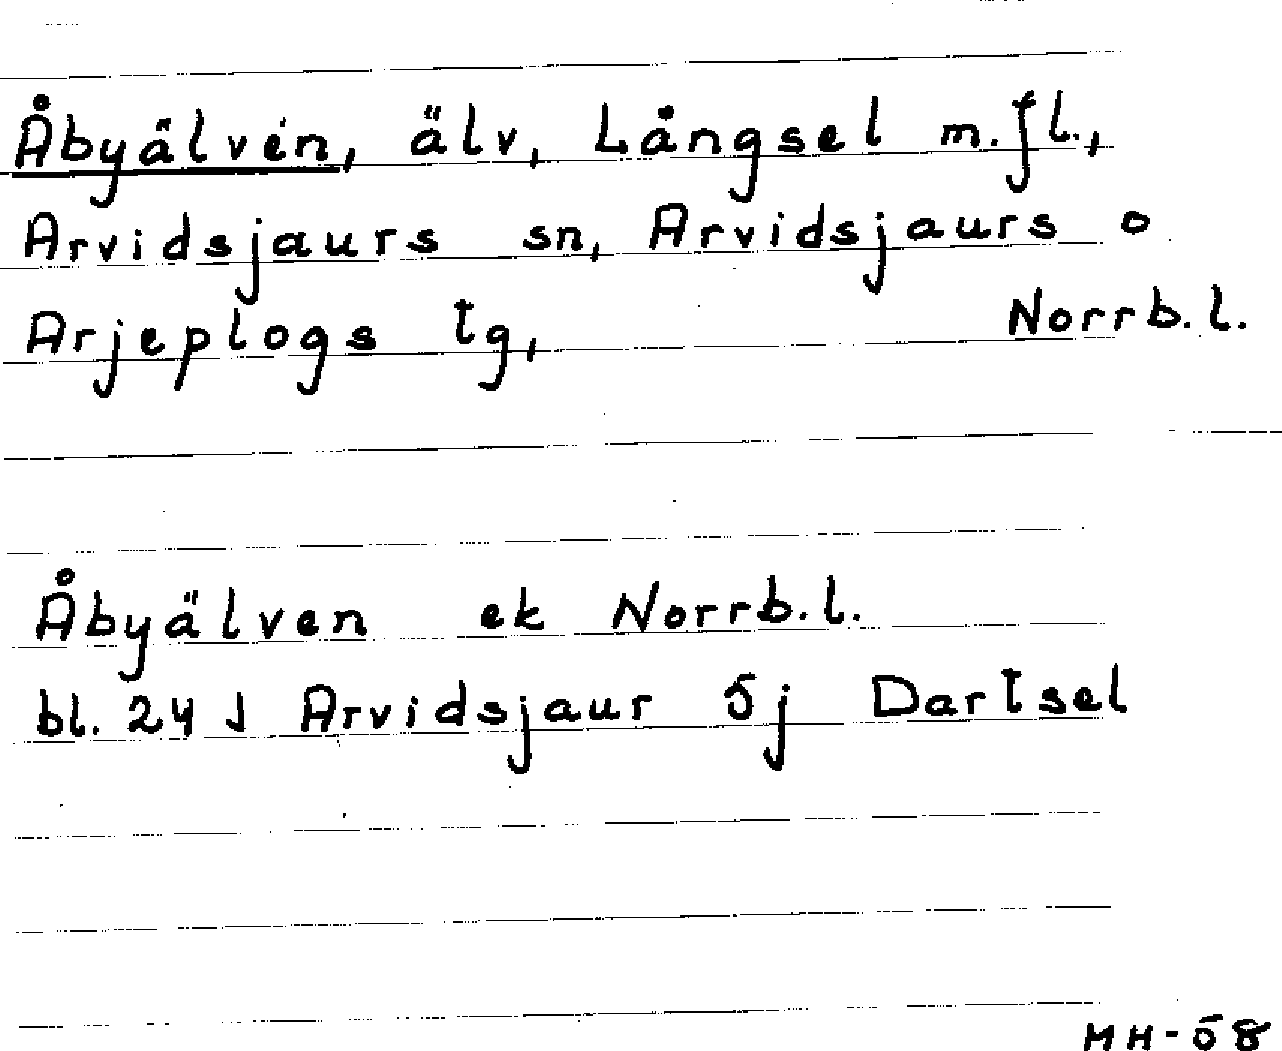 Åbyälven, älv, Långsel m.fl.,
Arvidsjaurs sn, Arvidsjaurs o
Arjeplogs tg, Norrb.l.
Åbyälven ek Norrb.l.
bl. 24 J Arvidsjaur 5j Dartsel
MH-58